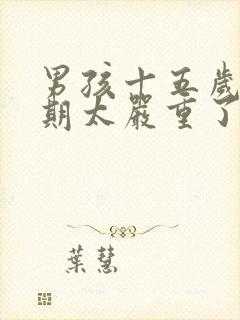 男孩十五歲
期太嚴重了
葉慧